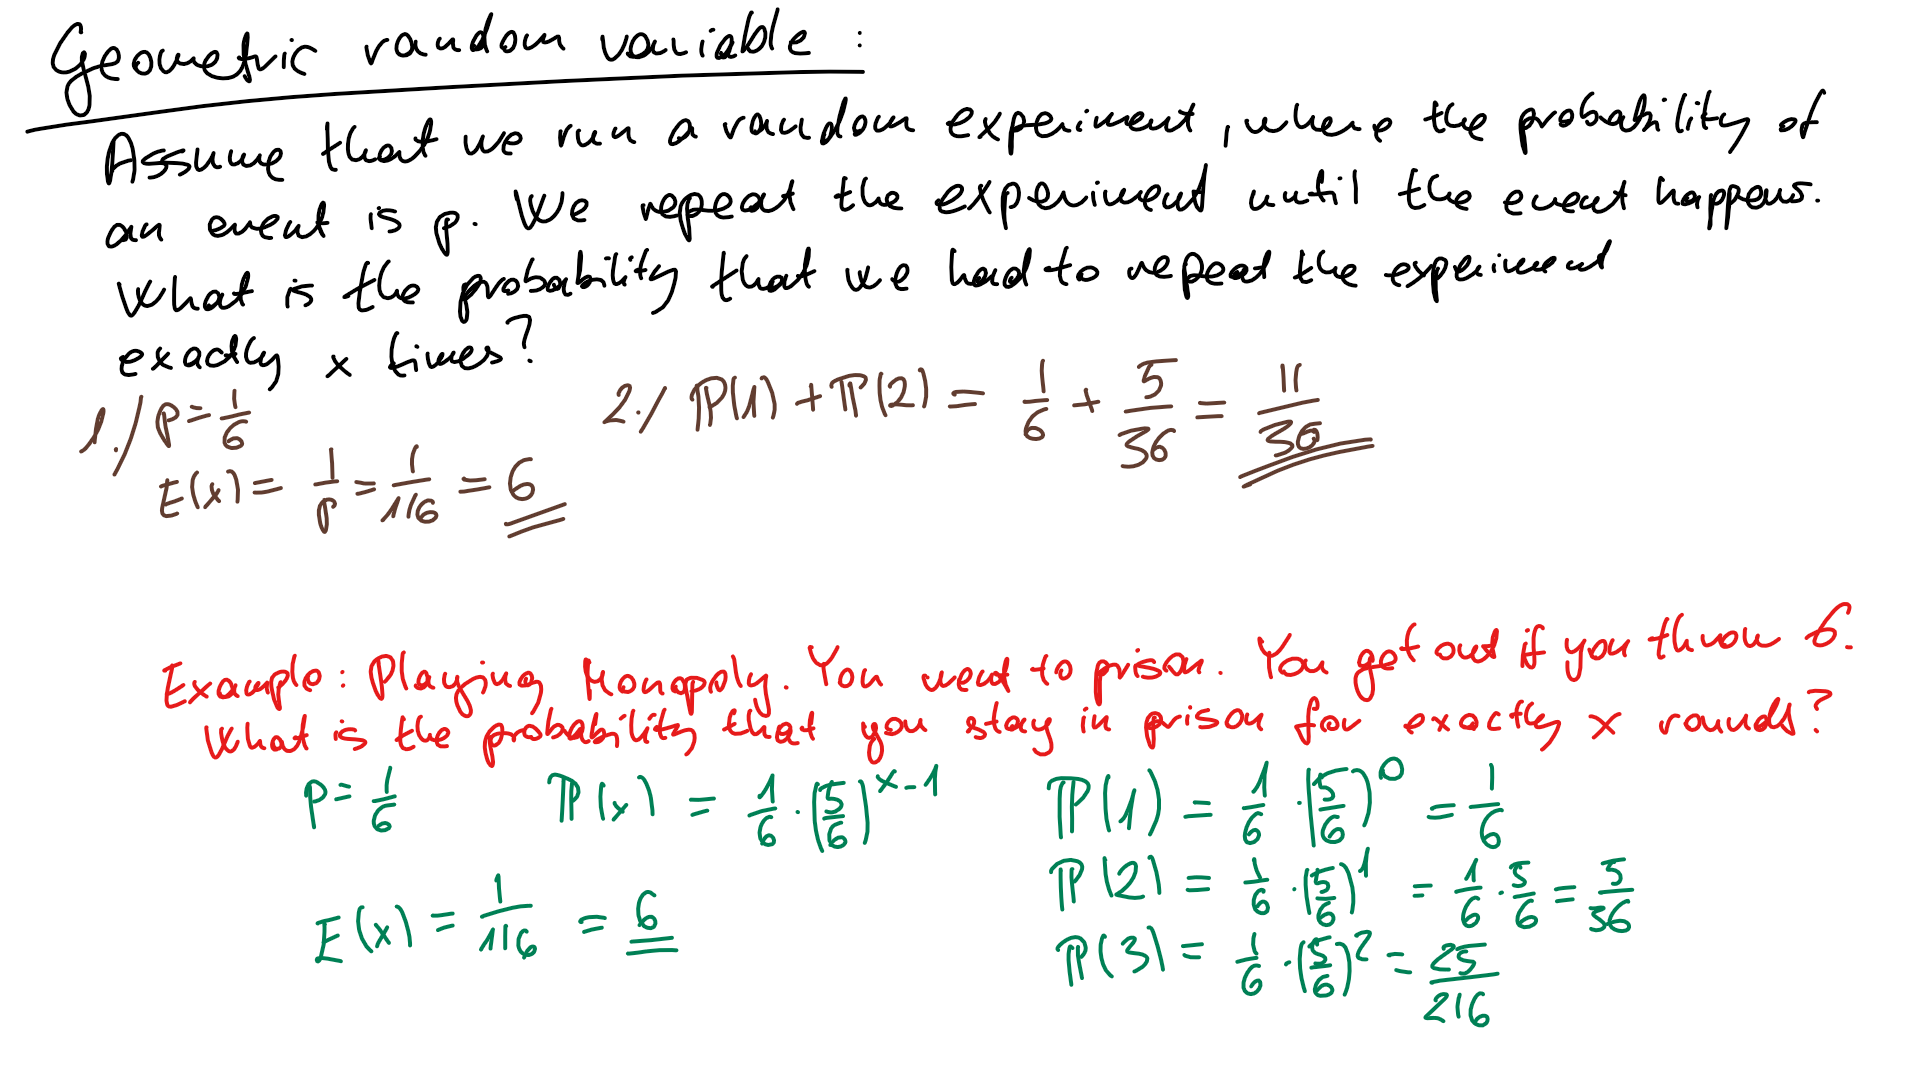 Geometric random variable :
Assume that we run a random experiment, where the probability of
an event is p. We repeat the experiment until the event happens.
What is the probability that we had to repeat the experiment
exactly x times?
1./ P = 1/6
E(x) = 1/p = 1/1/6 = 6
2./ ℙ(1) + ℙ(2) = 1/6 + 5/36 = 11/36
Example: Playing Monopoly. You went to prison. You get out if you throw 6.
What is the probability that you stay in prison for exactly x rounds?
P = 1/6
ℙ(x) = 1/6 · (5/6)^x-1
E(x) = 1/1/6 = 6
ℙ(1) = 1/6 · (5/6)^0 = 1/6
ℙ(2) = 1/6 · (5/6)^1 = 1/6 · 5/6 = 5/36
ℙ(3) = 1/6 · (5/6)^2 = 25/216